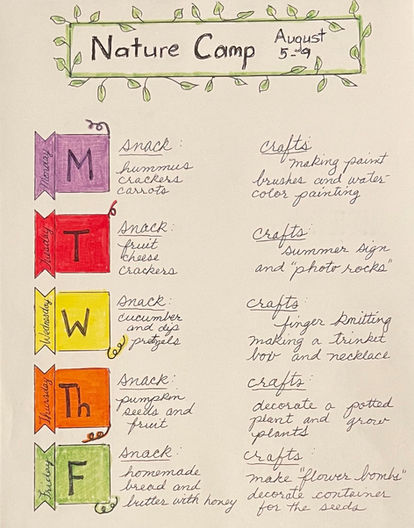 Nature Camp
August
5-9
Monday
M
Snack:
hummus
crackers
carrots
crafts:
making paint
brushes and water-
color painting
Tuesday
T
Snack:
fruit
cheese
crackers
crafts:
summer sign
and "photo rocks"
Wednesday
W
Snack:
cucumber
and dip
pretzels
crafts:
finger knitting
making a trinket
box and necklace
Thursday
Th
Snack:
pumpkin
seeds and
fruit
crafts:
decorate a potted
plant and grow
plants
Friday
F
Snack:
homemade
bread and
butter with honey
crafts:
make "flower bombs"
decorate container
for the seeds